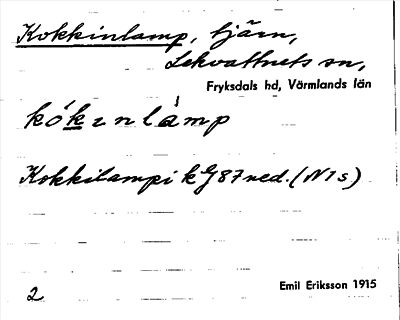 Kokkinlamp, tjärn,
Lekvattnets sn,
Fryksdals hd, Värmlands län
kókınlàmp
Kokkilampi k G 87 ned. (N 1 s)
2
Emil Eriksson 1915